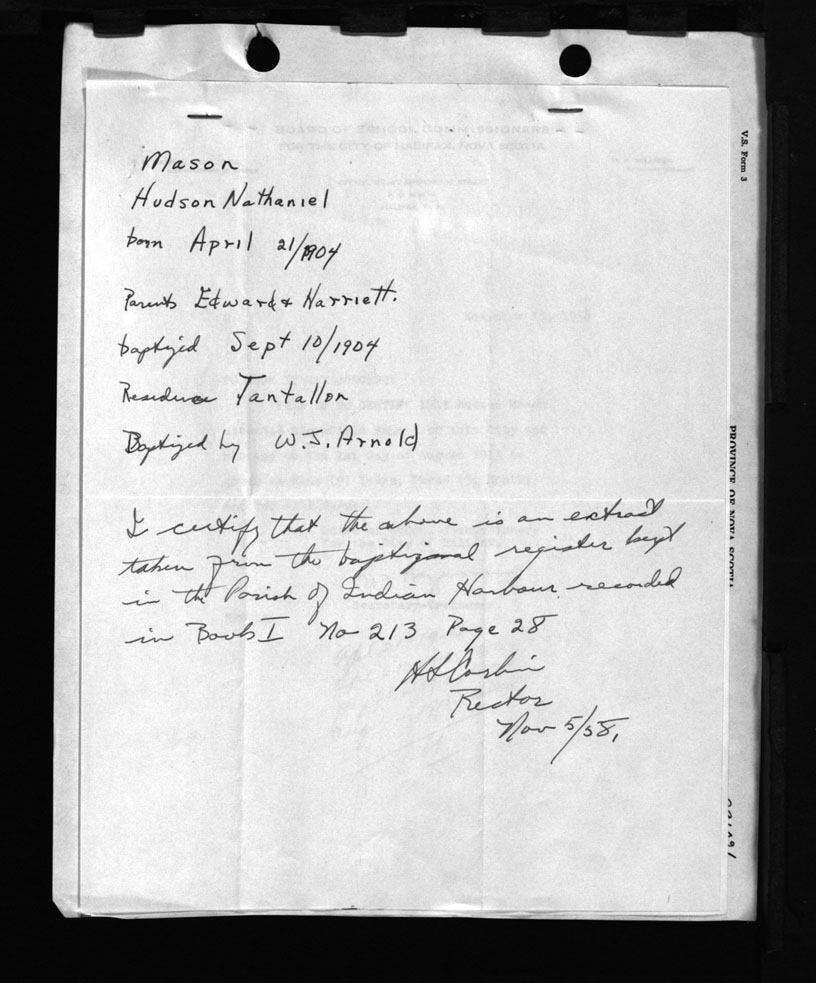 BOARD OF SCHOOL COMMISSIONERS
FOR THE CITY OF HALIFAX, NOVA SCOTIA
V.S. Form 3
Mason
Hudson Nathaniel
born April 21/1904
Parents Edward & Harriett.
baptized Sept 10/1904
Residence Tantallon
Baptized by W.J. Arnold
PROVINCE OF NOVA SCOTIA
I certify that the above is an extract
taken from the baptismal register kept
in the Parish of Indian Harbour recorded
in Book I No 213 Page 28
Rector
Nov 5/58,